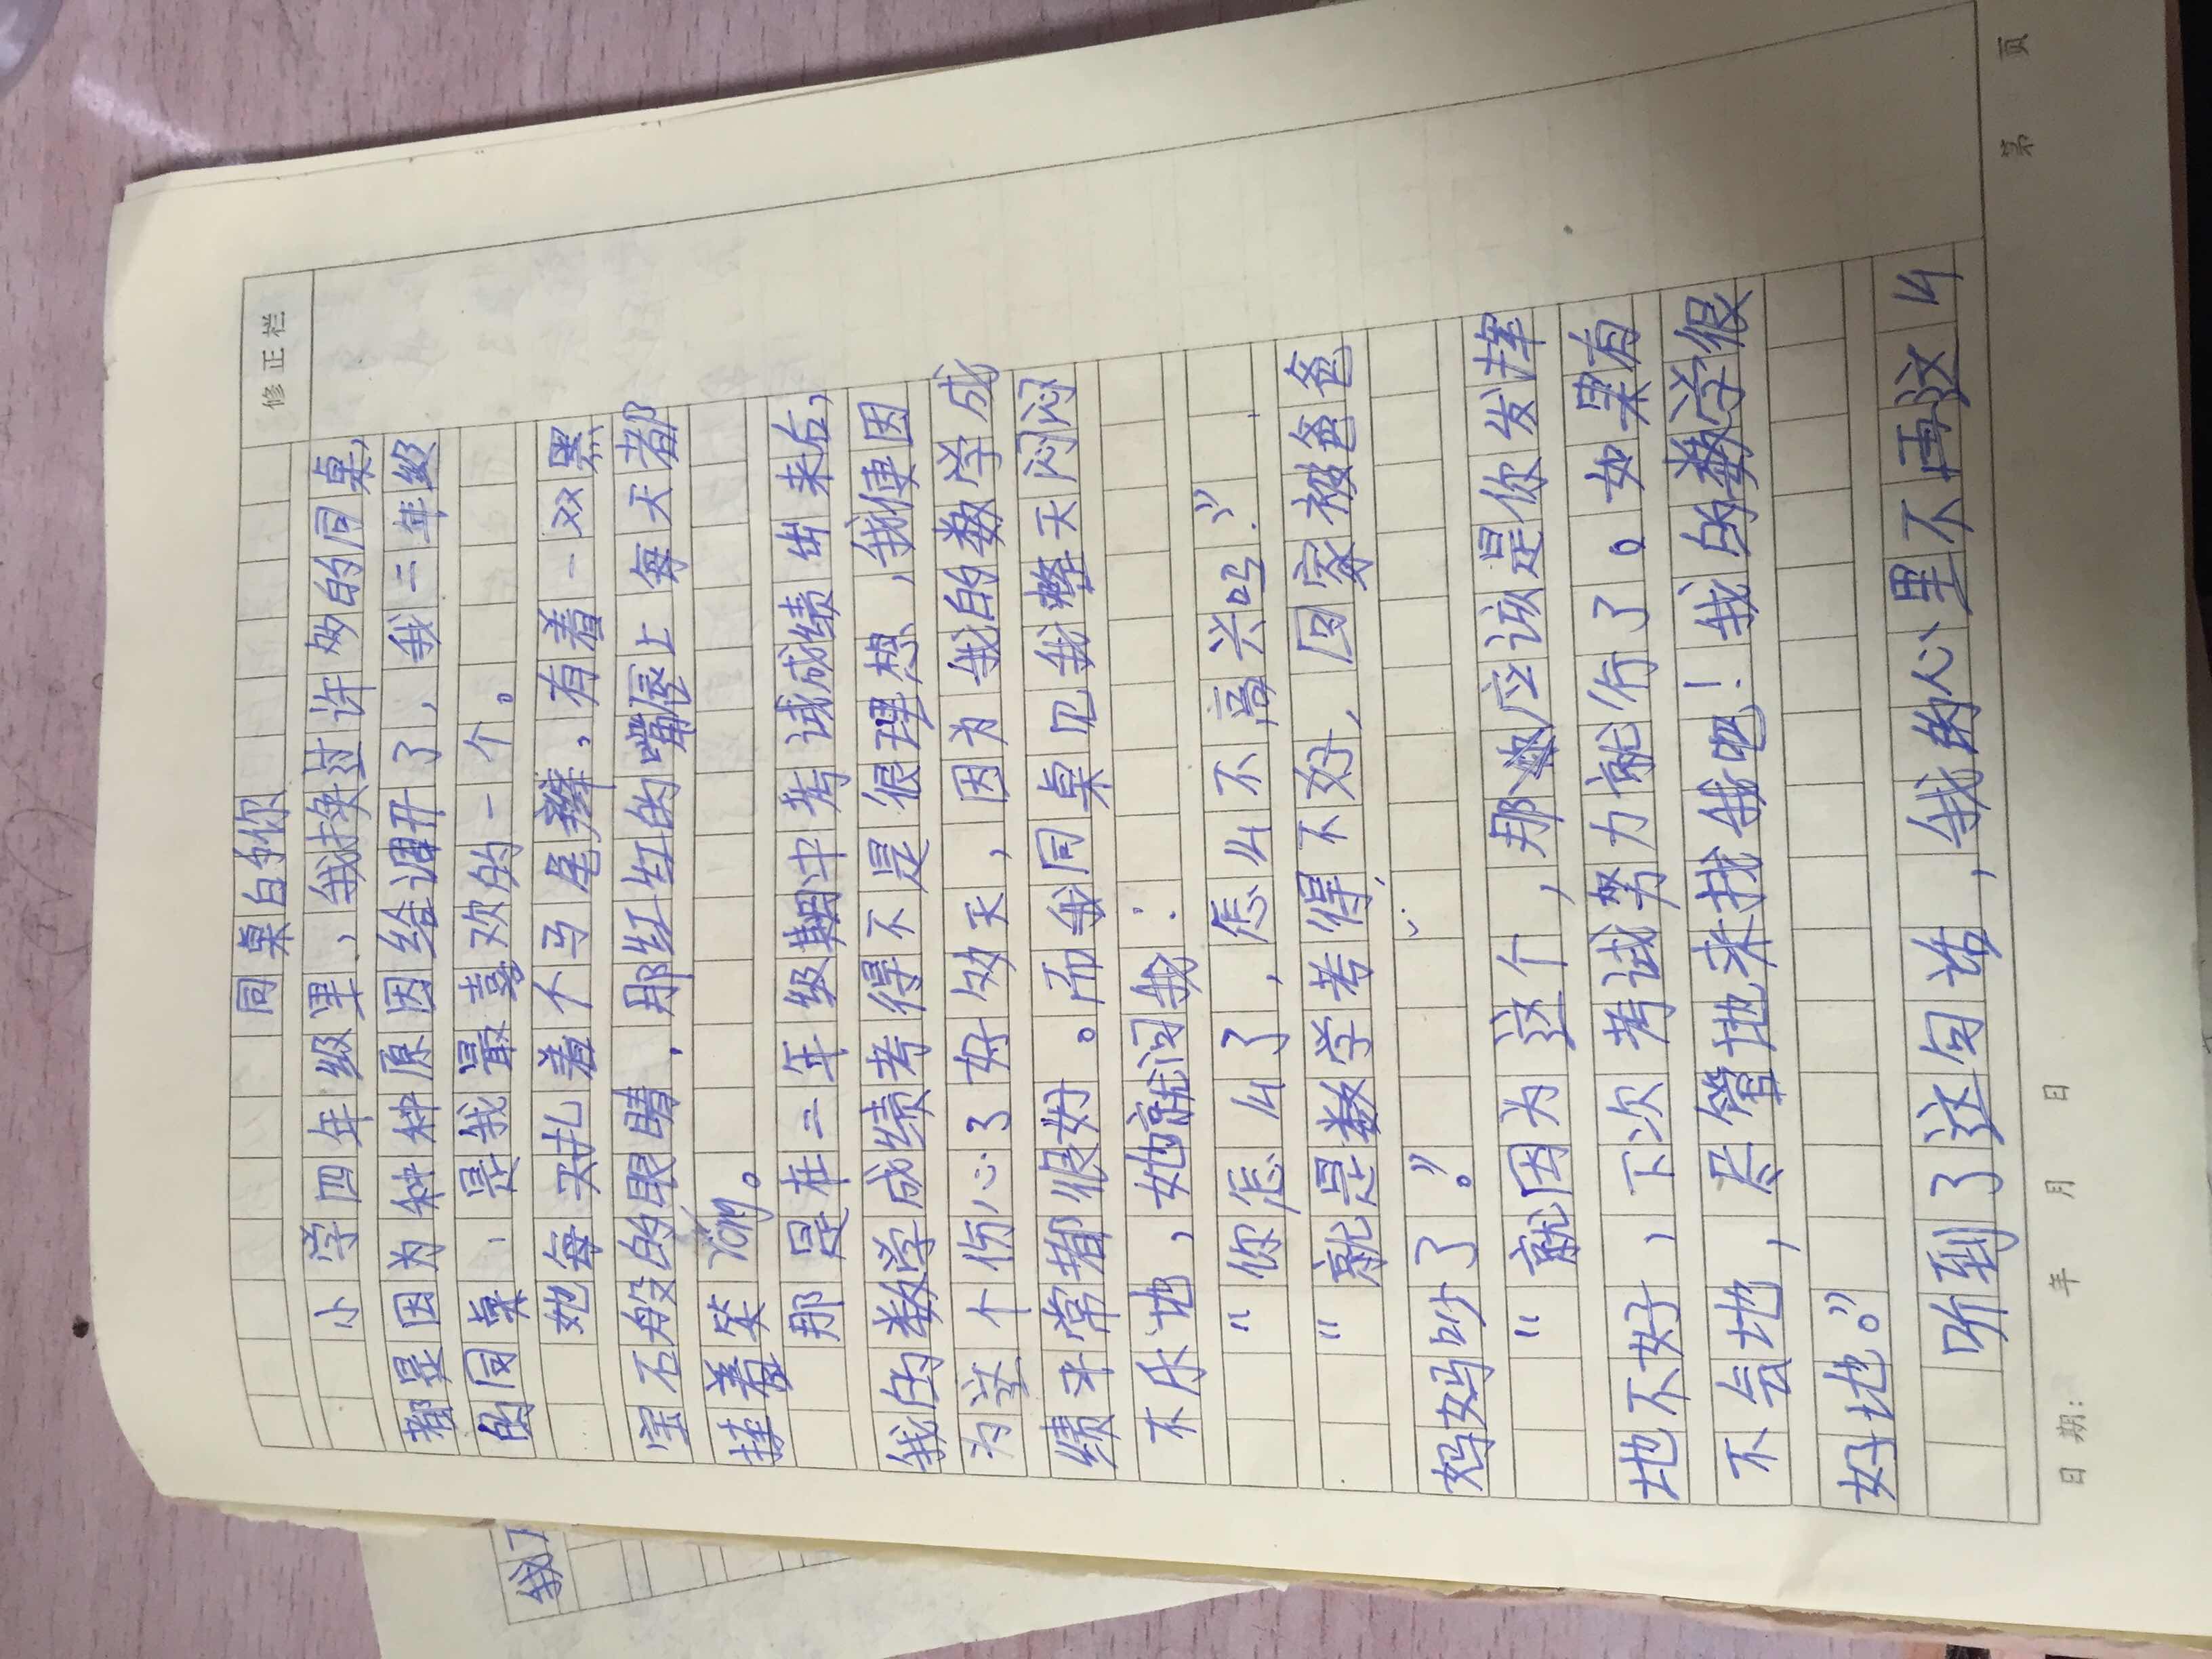 修正栏
同桌的你
小学四年级里,我换过许多的同桌,
都是因为种种原因给调开了,我二年级
的同桌,是我最喜欢的一个。
她每天扎着个马尾辫,有着一双黑
宝石般的眼睛,那红红的嘴唇上每天都
挂着笑róng。
那是在二年级期中考试成绩出来后,
我的数学成绩考得不是很理想,我便因
为这个伤心了好多天,因为我的数学成
绩平常都很好。而我同桌见我整天闷闷
不乐地,她就问我:
“你怎么了,怎么不高兴吗?”
“就是数学考得不好,回家被爸爸
妈妈吵了。”
“就因为这个,那应该是你发挥
地不好,下次考试努力就行了。如果有
不会地,尽管地来找我吧!我的数学很
好地。”
听到了这句话,我的心里不再这么
日期: 年 月 日
第 页
我